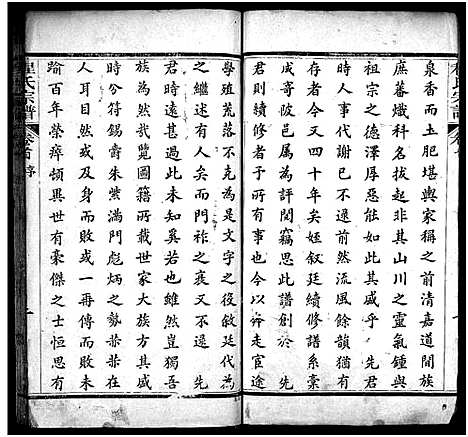 泉香而土肥堪輿家稱之前清嘉道間族
庶蕃熾科名拔起非其山川之靈氣鍾與
祖宗之德澤厚惡能若此其盛乎　先君
存者今又四十年矣姪敘廷續修譜系稾
成寄陂邑屬為評閱竊思此譜創於　先
君則續修有所有事也今以奔走宦途
學殖荒落不克為是文字之役敘廷代為
之繼述有人祚之衰又不幸
君時遠甚過此未知奚若也雖然豈獨吾
族為然哉覽圖籍所載世家大族方其
時分符錫爵朱紫滿門彪炳之勢赫赫在
人耳目未及身而敗或一再傳而敗未
踰百年榮瘁頓異世有豪傑之士恒思有
程氏宗譜
卷首
序
一